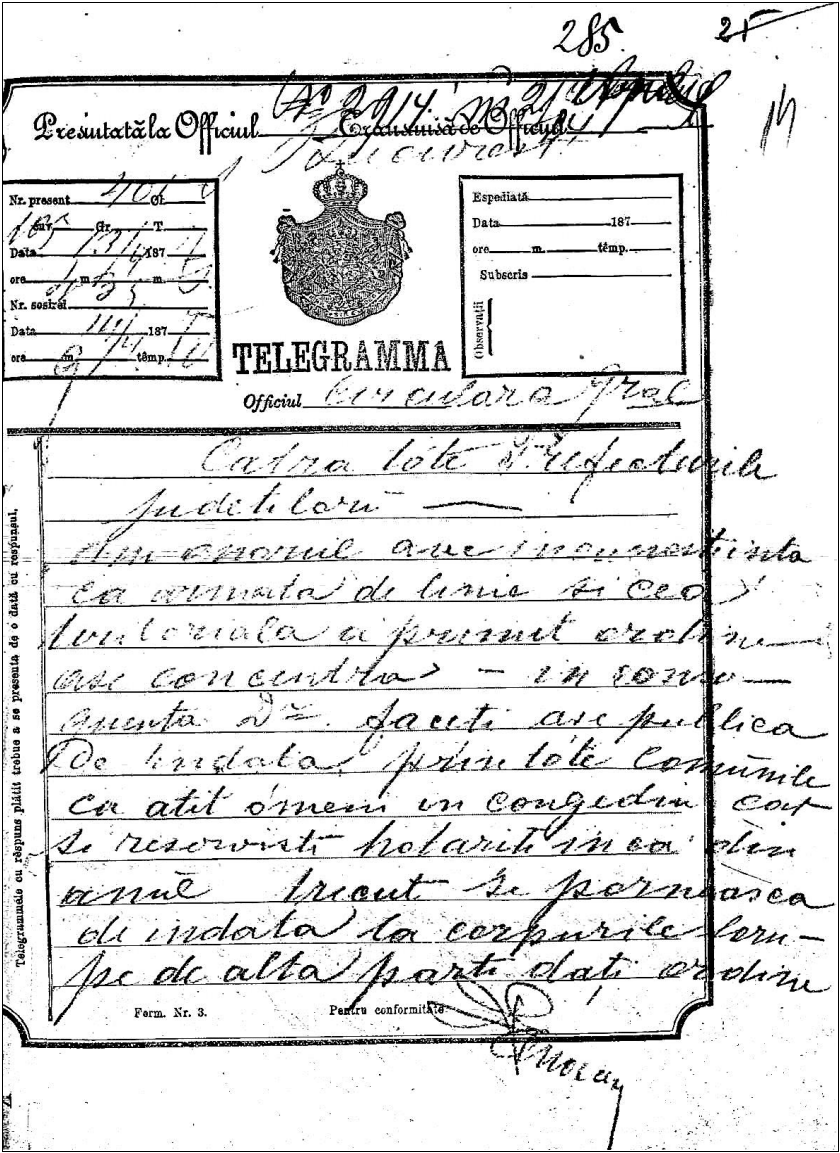 285. 25
No 2914
Presintată la Officiul Transmisă de Officiul
Bucuresti
Nr. present 401 Of.
cuv. Gr. T.
Data 187
ore m. m.
Nr. sosirei
Data 187
ore m. têmp.
TELEGRAMMA
Espediată
Data 187
ore m. têmp.
Subscris
Observații
Officiul Circulara Gral
Telegrammele cu rĕspuns plătit trebue a se presenta de o dată cu respunsul.
Catra tote Prefecturile
judetiloru —
Am onorul ave incunostiinta
ca armata de linie si cea
teritoriala a primit ordine
ase concentra – in conse–
quenta Dv. faceti ase publica
De indata prin tote Comunile
ca atit omeni in congediu cat
si reservisti hotariti inca din
anul trecut se porneasca
de indata la corpurile loru –
pe de alta parti dați ordine
Form. Nr. 3. Pentru conformitate